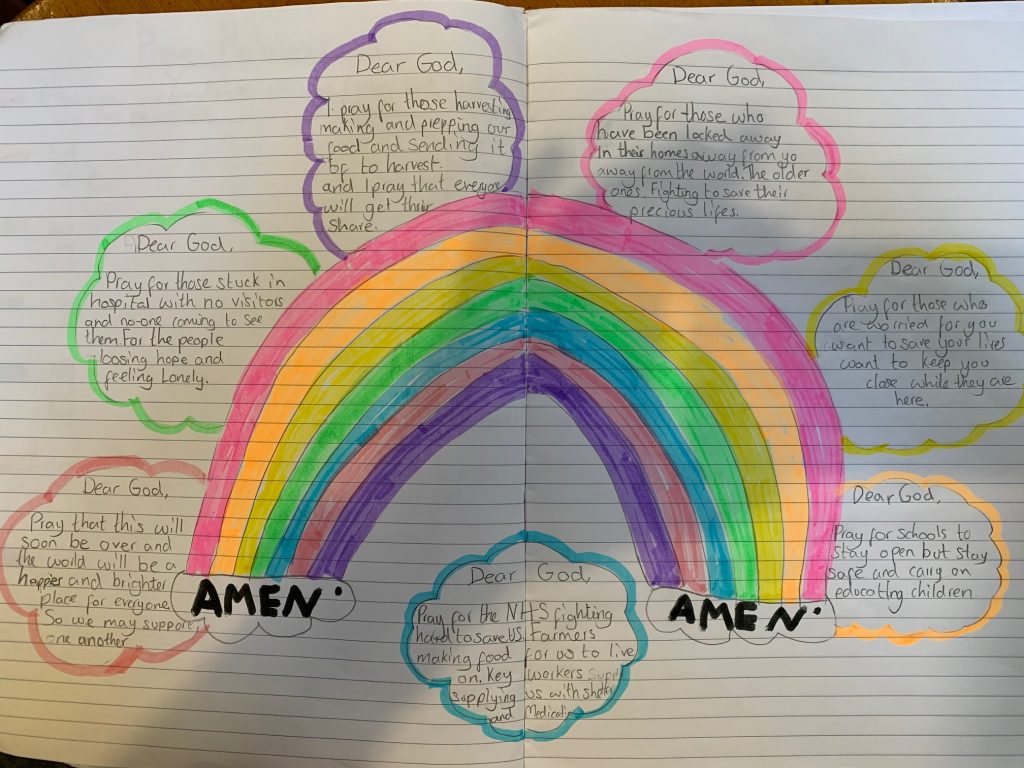 Dear God,
I pray for those harvesting
making and prepping our
food and sending it
of to harvest.
and I pray that everyone
will get their
share.
Dear God,
Pray for those who
have been locked away
In their homes away from yo
away from the world. The older
ones fighting to save their
precious lifes.
Dear God,
Pray for those stuck in
hospital with no visitors
and no-one coming to see
them for the people
loosing hope and
feeling Lonely.
Dear God,
Pray for those who
are worried for you
want to save your lives
want to keep you
close while they are
here.
Dear God,
Pray that this will
soon be over and
the world will be a
happier and brighter
place for everyone
So we may support,
one another
Dear God,
Pray for schools to
stay open but stay
safe and carry on
educating children
AMEN.
AMEN.
Dear God,
Pray for the NHS fighting
hard to save us. Farmers
making food for us to live
on. Key workers
supplying us with shelter
and